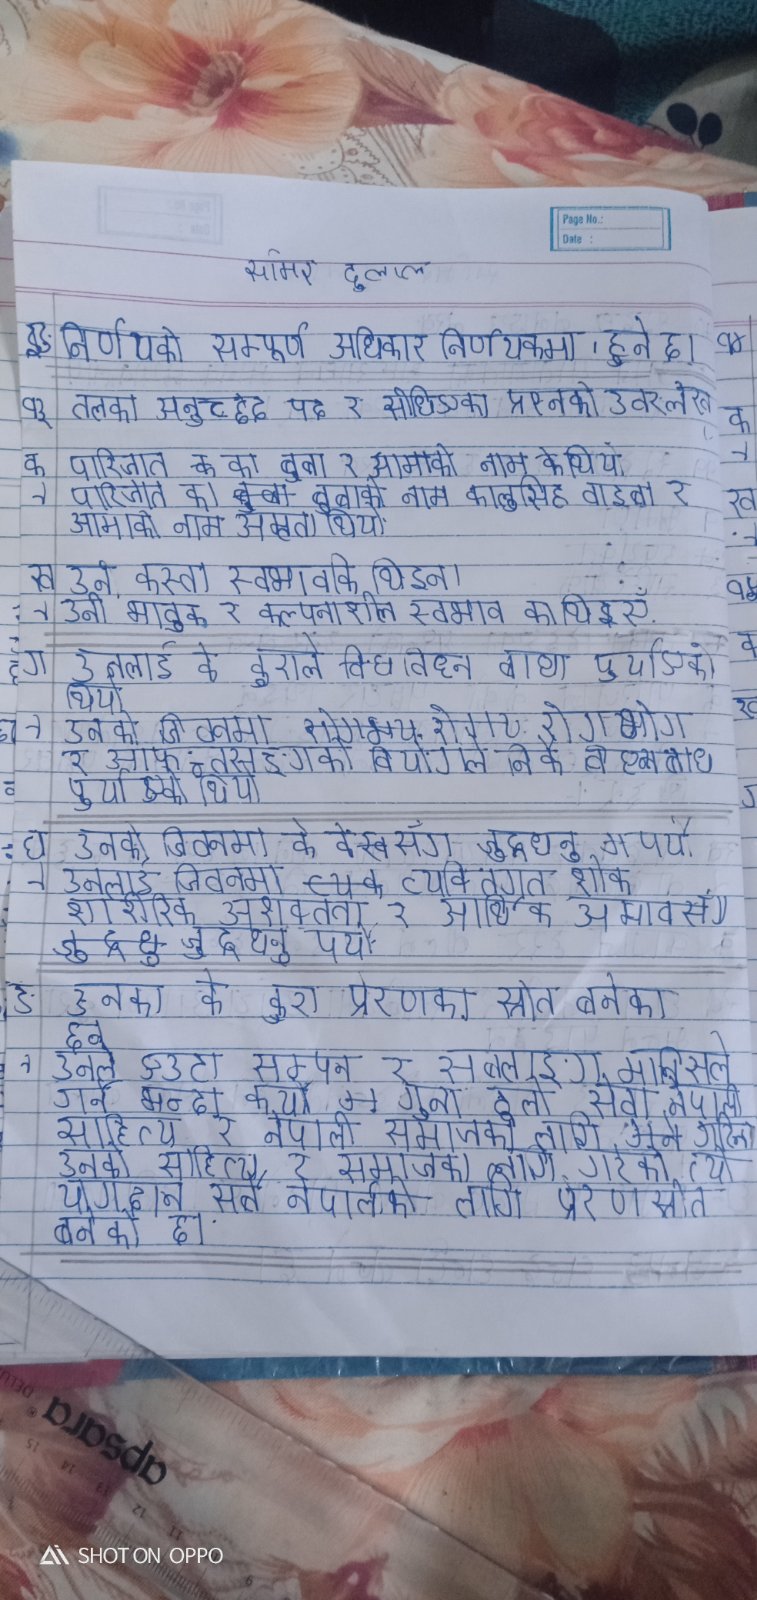 Page No.:
Date :
समिर दुलाल
ङ निर्णयको सम्पूर्ण अधिकार निर्णयकमा हुने छ।
१३ तलका अनुच्छेद पढ र सोधिएका प्रश्नको उत्तर लेख
क पारिजात क का बुबा र आमाको नाम के थियो
→ पारिजात का बुबाको नाम कालुसिंह वाइबा र
आमाको नाम अमृता थियो
ख उन कस्ता स्वभावकि थिइन।
→ उनी भावुक र कल्पनाशील स्वभाव का थिइन्
ग उनलाई के कुराले विघ्न बाधा पुर्याएको
थियो
→ उनको जिवनमा रोग भोग
र आफन्तसङ्गको वियोगले निकै बाधा
पुर्याएको थियो
घ उनको जिवनमा के केसँग जुद्धनु पर्यो
→ उनलाई जिवनमा व्यक्तिगत शोक
शारीरिक अशक्तता र आर्थिक अभावसँग
जुद्धनु पर्यो
ङ उनका के कुरा प्रेरणका स्रोत बनेका
छन
→ उनले एउटा सम्पन र सबलाङ्ग मानिसले
गर्ने भन्दा कयौं गुना ठुलो सेवा नेपाली
साहित्य र नेपाली समाजको लागि
उनको साहित्य र समाजका लागि गरेको त्यो
योगदान सबै नेपालीको लागि प्रेरणस्रोत
बनेको छ।
apsara
SHOT ON OPPO